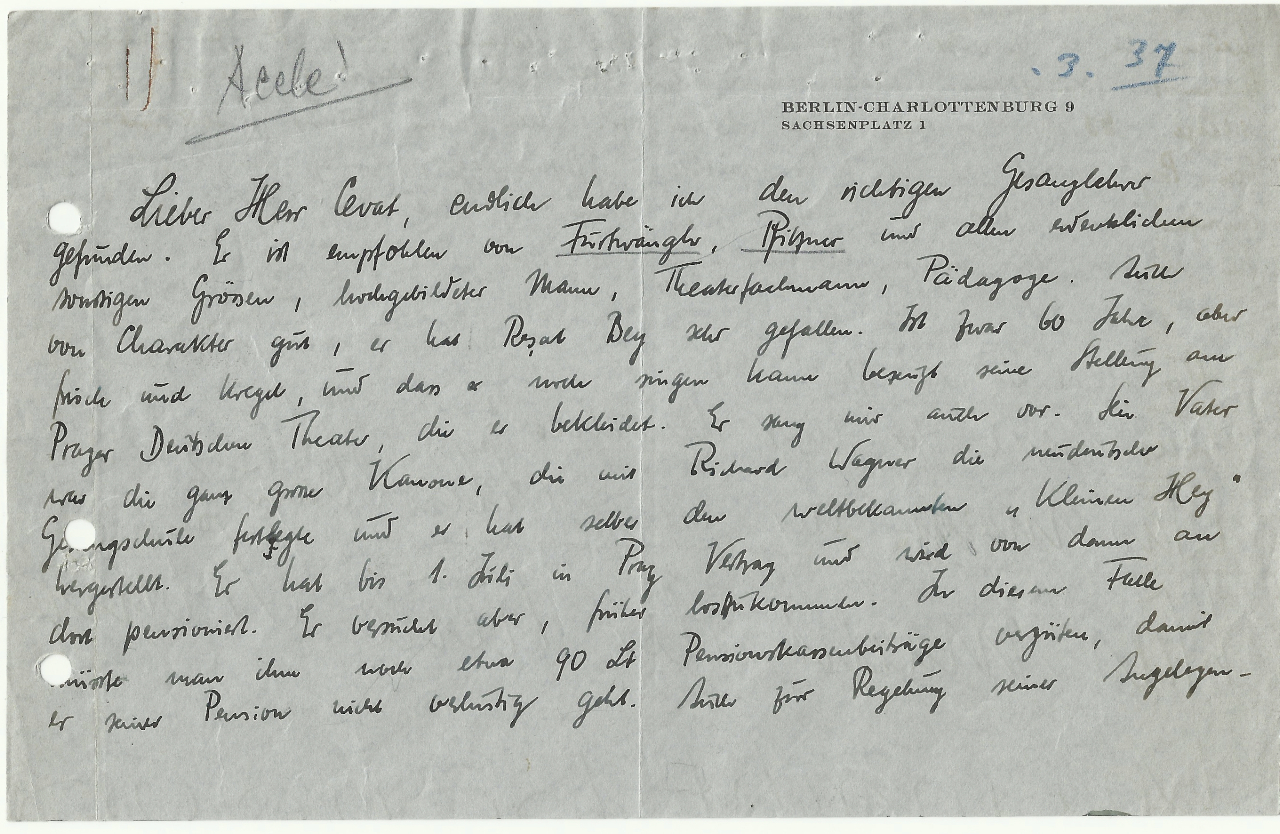 1) Acele!
. 3. 37
BERLIN-CHARLOTTENBURG 9
SACHSENPLATZ 1
Lieber Herr Cevat, endlich habe ich den richtigen Gesanglehrer
gefunden. Er ist empfohlen von Furtwängler, Pfitzner und allen erdenklichen
sonstigen Grössen, hochgebildeter Mann, Theaterfachmann, Pädagoge. Auch
von Charakter gut, er hat Reşat Bey sehr gefallen. Ist zwar 60 Jahre, aber
frisch und kregel, und dass er noch singen kann bezeugt seine Stellung am
Prager Deutschen Theater, die er bekleidet. Er sang mir auch vor. Sein Vater
war die ganz grosse Kanone, die mit Richard Wagner die neudeutsche
Gesangschule festlegte und er hat selber den weltbekannten „Kleinen Hey"
hergestellt. Er hat bis 1. Juli in Prag Vertrag und wird von dann an
dort pensioniert. Er versucht aber, früher loszukommen. In diesem Falle
müsste man ihm noch etwa 90 Lt Pensionskassenbeiträge vergüten, damit
er seiner Pension nicht verlustig geht. Auch zur Regelung seiner Angelegen-